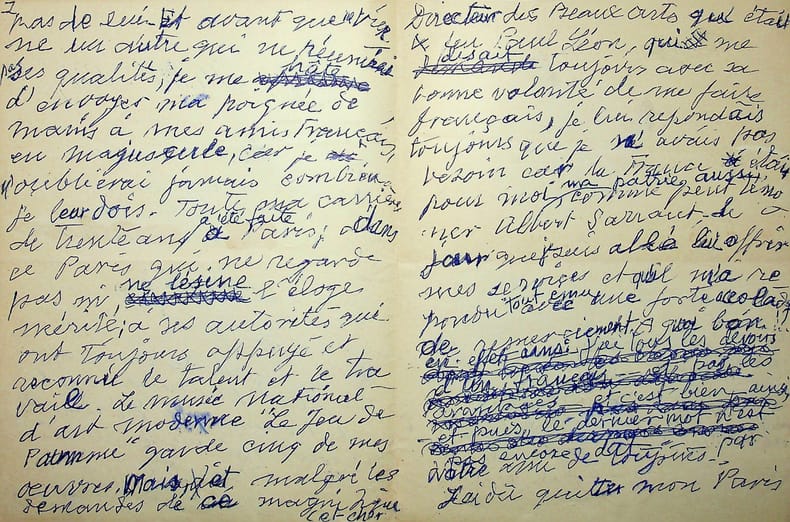 1
mas de lui. Et avant que ne vien
ne un autre qui ne réunirais
pas ses qualités, je me hâte
d'envoyer ma poignée de
mains à mes amis Français,
en majuscule, car je
n'oublierai jamais combien
je leur dois. Toute ma carrière
de trente ans a été faite à Paris, dans
ce Paris qui ne regarde
pas ni ne lésine l'éloge
mérité, à ses autorités que
ont toujours appuyé et
reconnu le talent et le tra
vail. Le musée National
d'art moderne "Le Jeu de
Paumme" garde cinq de mes
oeuvres. Mais, et malgré les
demandes de magnifique
et cher
Directeur des Beaux arts que était
feu Paul Léon, qui me
disait toujours avec sa
bonne volonté de me faire
français, je lui repondais
toujours que je n'avais pas
besoin car la France était
pour moi ma patrie aussi,
comme peut témo
ner Albert Sarraut de
jour que je suis allé lui offrir
mes services et qu'il m'a re
pondu tout emu avec une forte accolade
de remerciement. A quoi bon
en effet ainsi j'ai tous les devoirs
d'un français et pas les
avantages et c'est bien ainsi
et puis, le dernier mot n'est
pas encore dit par
votre ami de toujours.
J'ai dû quitter mon Paris